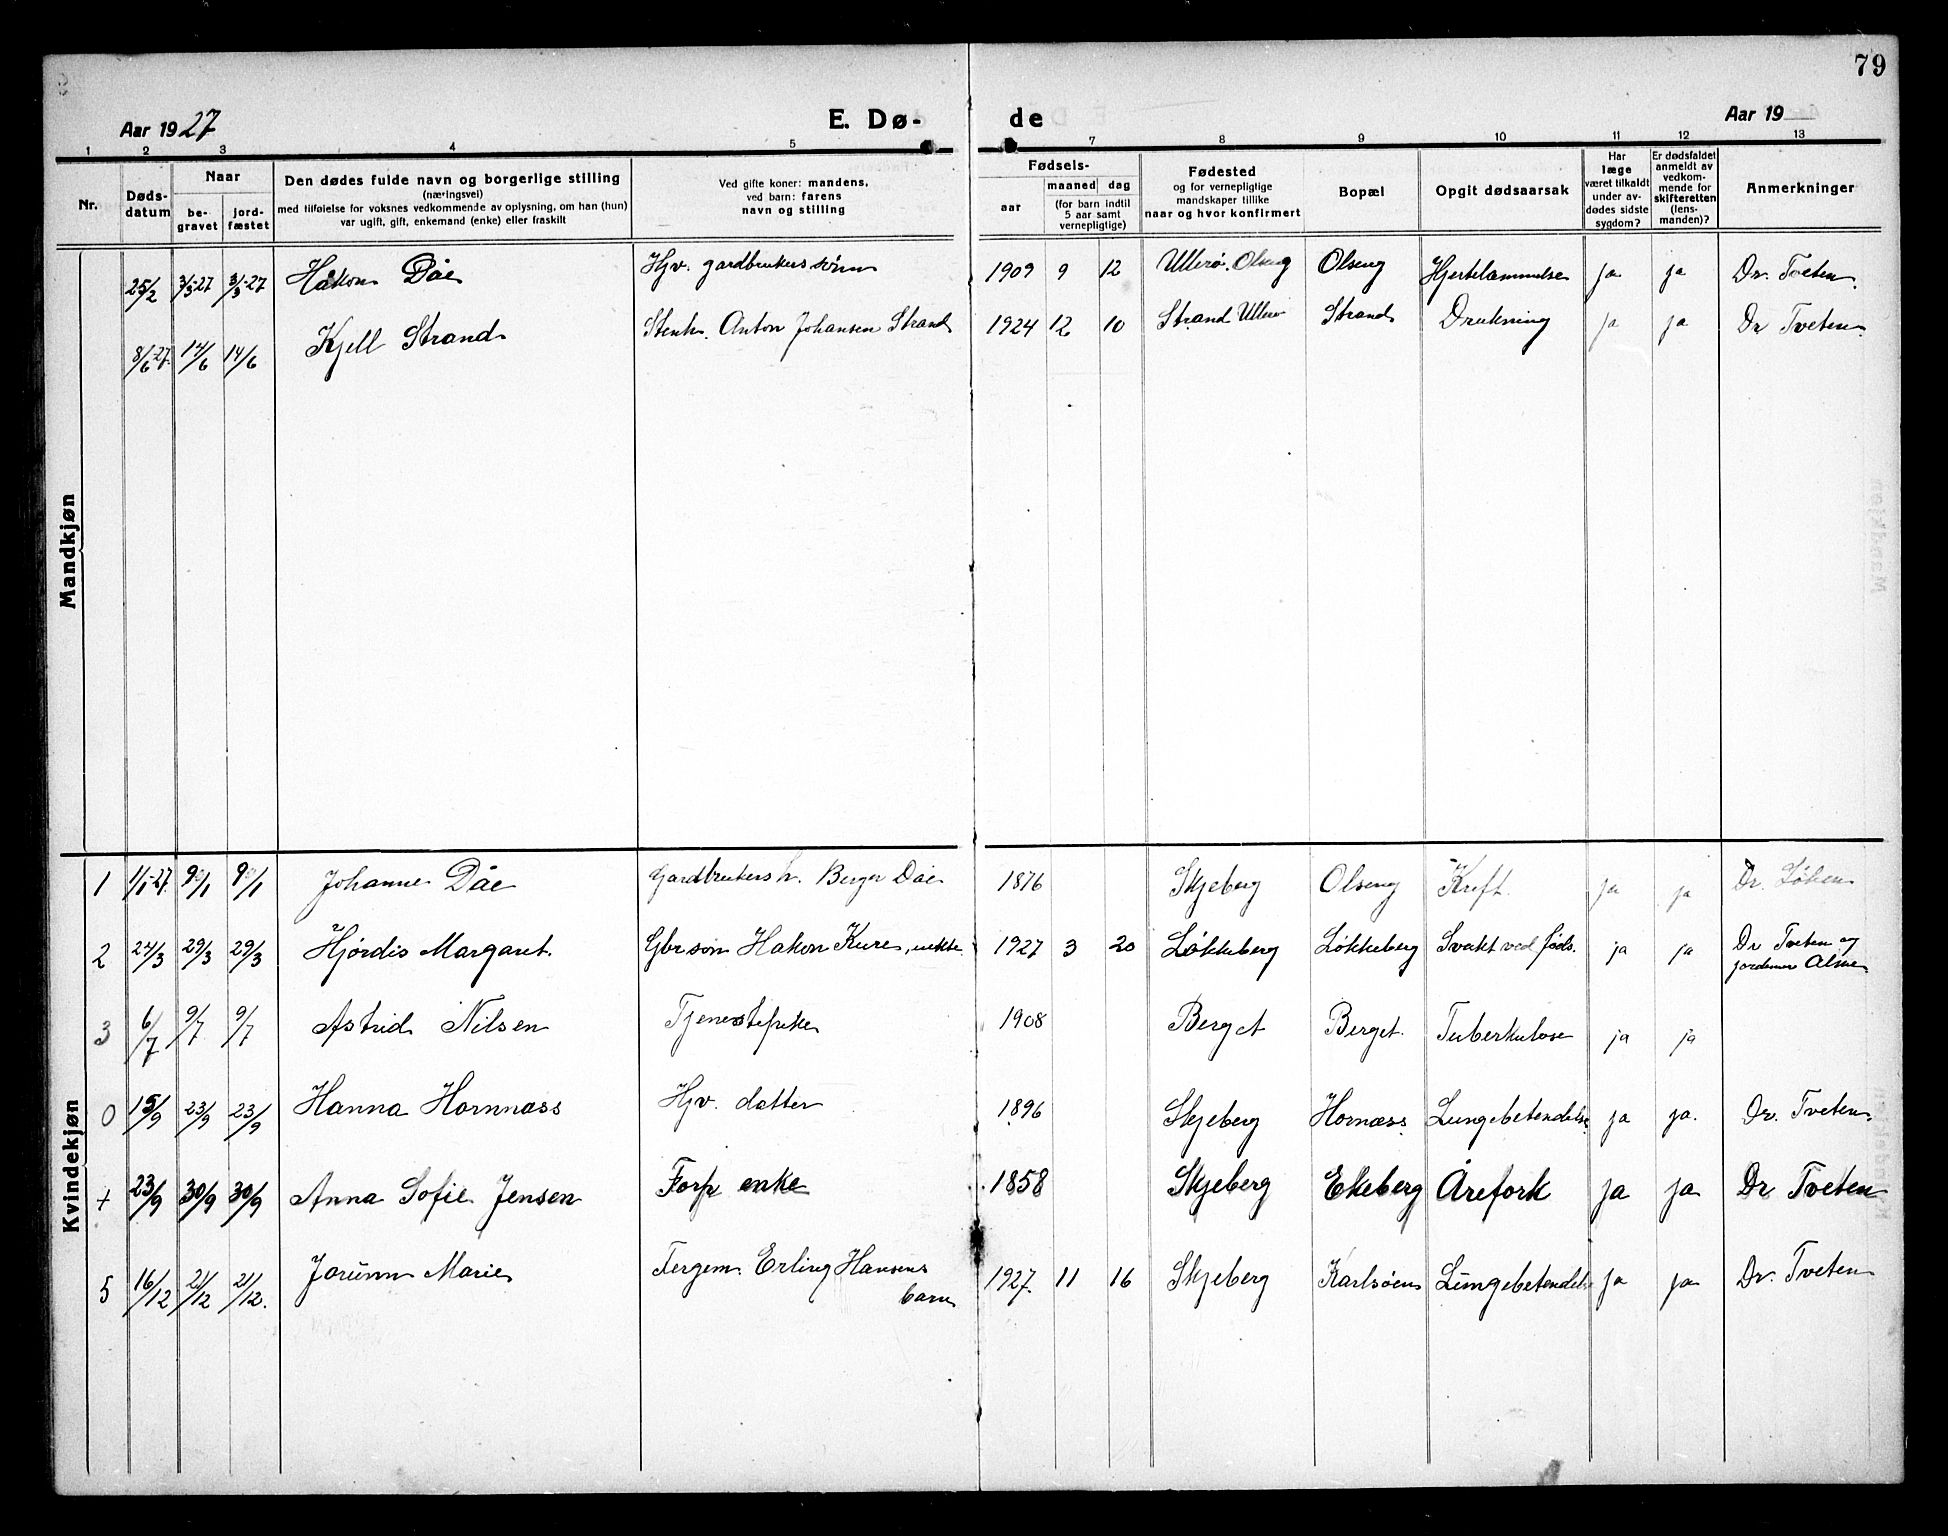 79
Aar 1927 E. Dø- de Aar 19
1 2 3 4 5 7 8 9 10 11 12 13
Nr.
Døds-
datum
Naar
be-
gravet
jord-
fæstet
Den dødes fulde navn og borgerlige stilling
(næringsvei)
med tilføielse for voksnes vedkommende av oplysning, om han (hun)
var ugift, gift, enkemand (enke) eller fraskilt
Ved gifte koner: mandens,
ved barn: farens
navn og stilling
Fødsels-
aar
maaned dag
(for barn indtil
5 aar samt
vernepligtige)
Fødested
og for vernepligtige
mandskaper tillike
naar og hvor konfirmert
Bopæl
Opgit dødsaarsak
Har
læge
været tilkaldt
under av-
dødes sidste
sygdom?
Er dødsfaldet
anmeldt av
vedkom-
mende for
skifteretten
(lens-
manden)?
Anmerkninger
Mandkjøn
25/2 3/3-27 3/3-27 Håkon Dåe Hjv. gardbrukers sønn 1909 9 12 Ullerø. Olseng Olseng Hjertelammelse ja ja Dr. Tveten.
8/6 27. 14/6 14/6 Kjell Strand Stenh. Anton Johansen Strand 1924 12 10 Strand Ullerø Strand Drukning ja ja Dr Tveten.
Kvindekjøn
1 1/1-27. 9/1 9/1 Johanne Dåe Gardbrukers h. Berger Dåe 1876 Skjeberg Olseng Kreft. ja ja Dr. Løken
2 24/3 29/3 29/3 Hjørdis Margaret. Gbrsøn Hakon Kure, 1927 3 20 Løkkeberg Løkkeberg Svakt ved føds. ja ja Dr Tveten og
jordemor Alme
3 6/7 9/7 9/7 Astrid Nilsen Tjenestepike 1908 Berget Berget. Tuberkulose ja ja
0 15/9 23/9 23/9 Hanna Hornnæss Hjv. datter 1896 Skjeberg Hornæss Lungebetendelse ja ja. Dr. Tveten.
+ 23/9 30/9 30/9 Anna Sofie Jensen Forp enke 1858 Skjeberg Ekeberg Årefork ja ja Dr. Tveten
5 16/12 21/12 21/12. Jorunn Marie Fergem. Erling Hansens
barn 1927. 11 16 Skjeberg Karlsøen Lungebetendelse ja ja Dr. Tveten